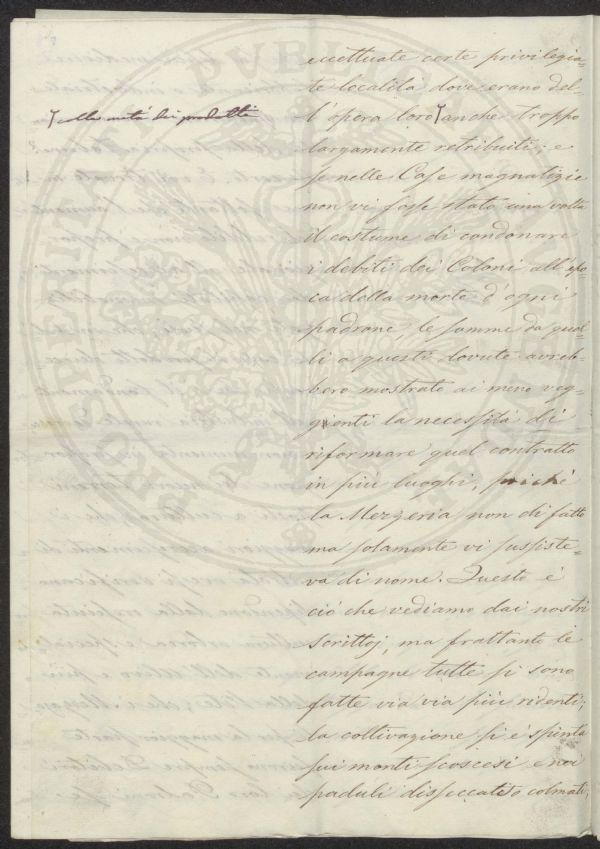 eccettuate certe privilegia-
te località dove erano del-
l'opera loro anche troppo
colla metà dei prodotti
largamente retribuiti; e
se nelle Case magnatizie
non vi fosse stato una volta
il costume di condonare
i debiti dei Coloni all'epo-
ca della morte d'ogni
padrone, le somme da quel-
li a questi dovute avreb-
bero mostrato ai meno veg-
gienti la necessità di
riformare quel contratto
in più luoghi, poichè
la Mezzeria non di fatto
ma solamente vi sussiste-
va di nome. Questo è
ciò che vediamo dai nostri
scrittoj, ma frattanto le
campagne tutte si sono
fatte via via più ridenti;
la coltivazione si è spinta
sui monti scoscesi e nei
paduli disseccati o colmati;
PROSPERITATI PUBLICAE AUGENDAE